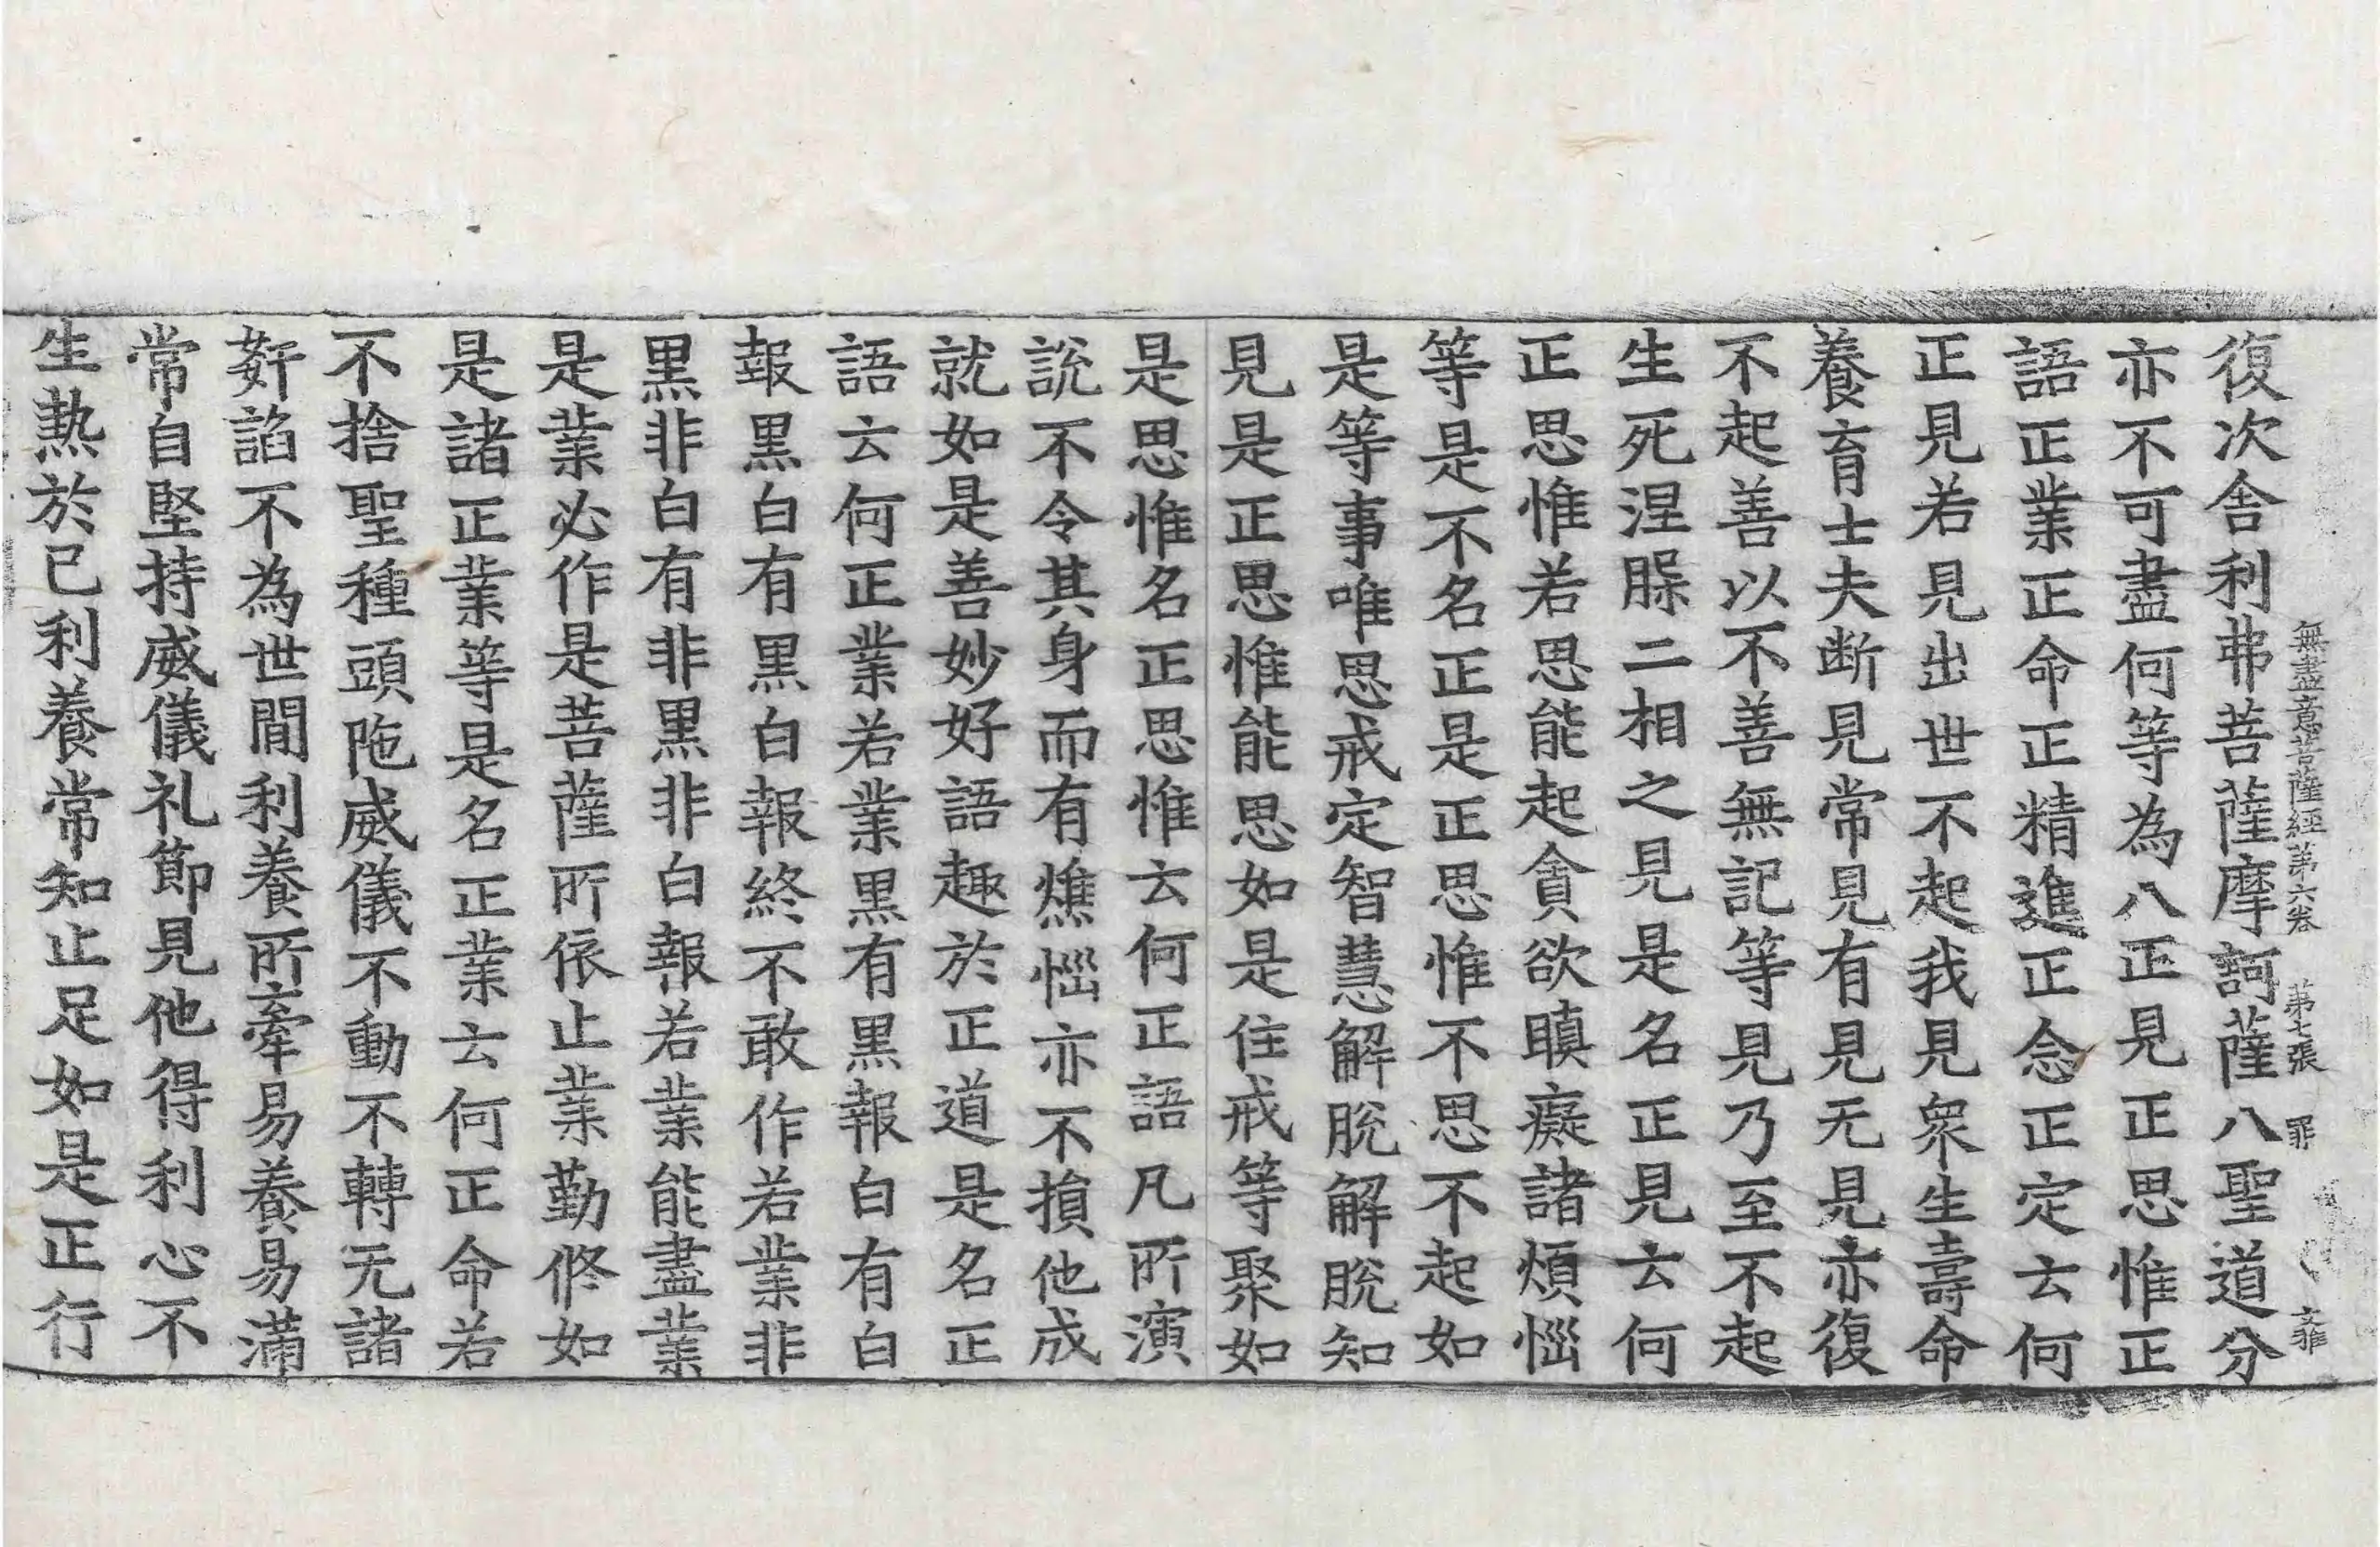 無盡意菩薩經第六卷 第七張 罪 文菲
復次舍利弗菩薩摩訶薩八聖道分
亦不可盡何等為八正見正思惟正
語正業正命正精進正念正定云何
正見若見出世不起我見衆生壽命
養育士夫断見常見有見无見亦復
不起善以不善無記等見乃至不起
生死涅脲二相之見是名正見云何
正思惟若思能起貪欲瞋癡諸煩惱
等是不名正是正思惟不思不起如
是等事唯思戒定智慧解脫解脫知
見是正思惟能思如是住戒等聚如
是思惟名正思惟云何正語凡所演
說不令其身而有燋惱亦不損他成
就如是善妙好語趣於正道是名正
語云何正業若業黒有黒報白有白
報黒白有黒白報終不敢作若業非
黒非白有非黒非白報若業能盡業
是業必作是菩薩所依止業勤修如
是諸正業等是名正業云何正命若
不捨聖種頭陁威儀不動不轉无諸
姧諂不為世間利養所牽易養易滿
常自堅持威儀礼節見他得利心不
生熱於已利養常知止足如是正行